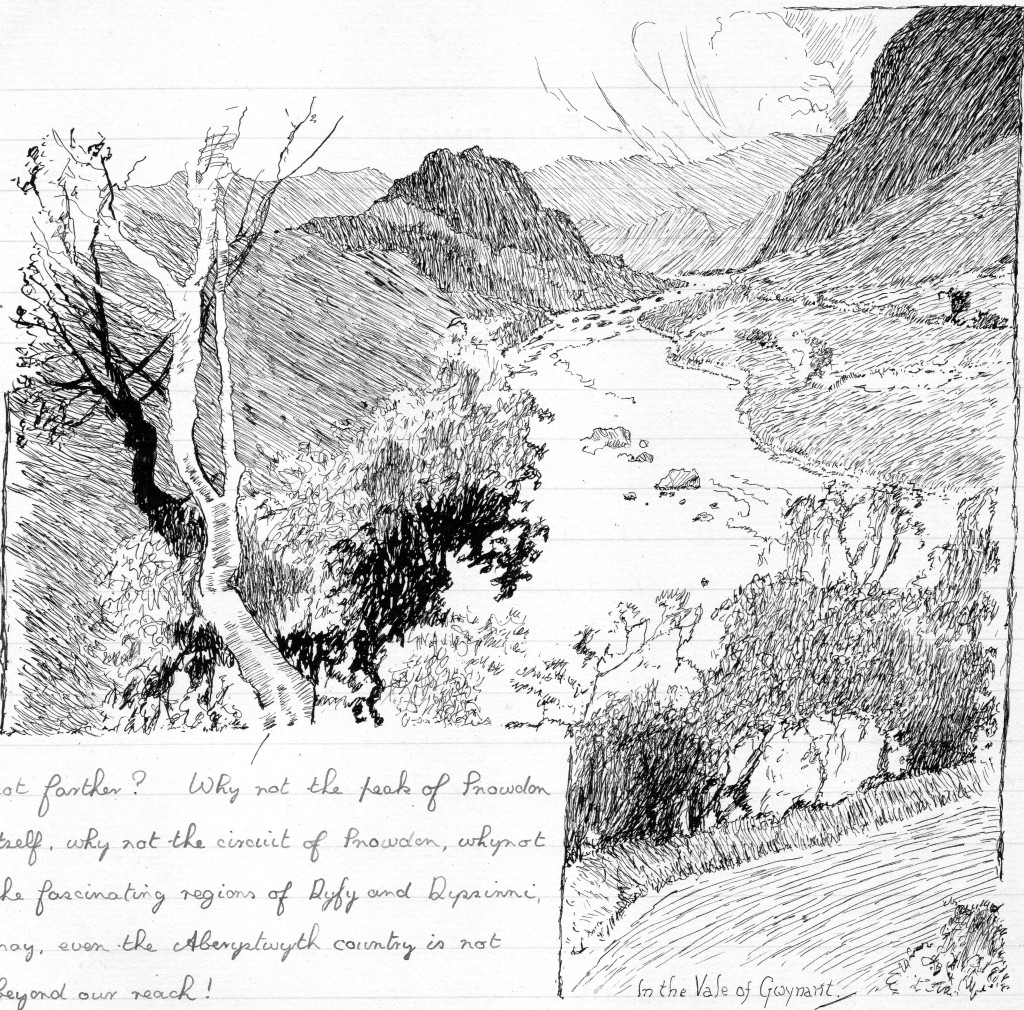 ot farther? Why not the peak of Snowdon
tself, why not the circuit of Snowdon, why not
he fascinating regions of Dyfy and Dyssinni,
nay, even the Aberystwyth country is not
beyond our reach!
In the Vale of Gwynant.